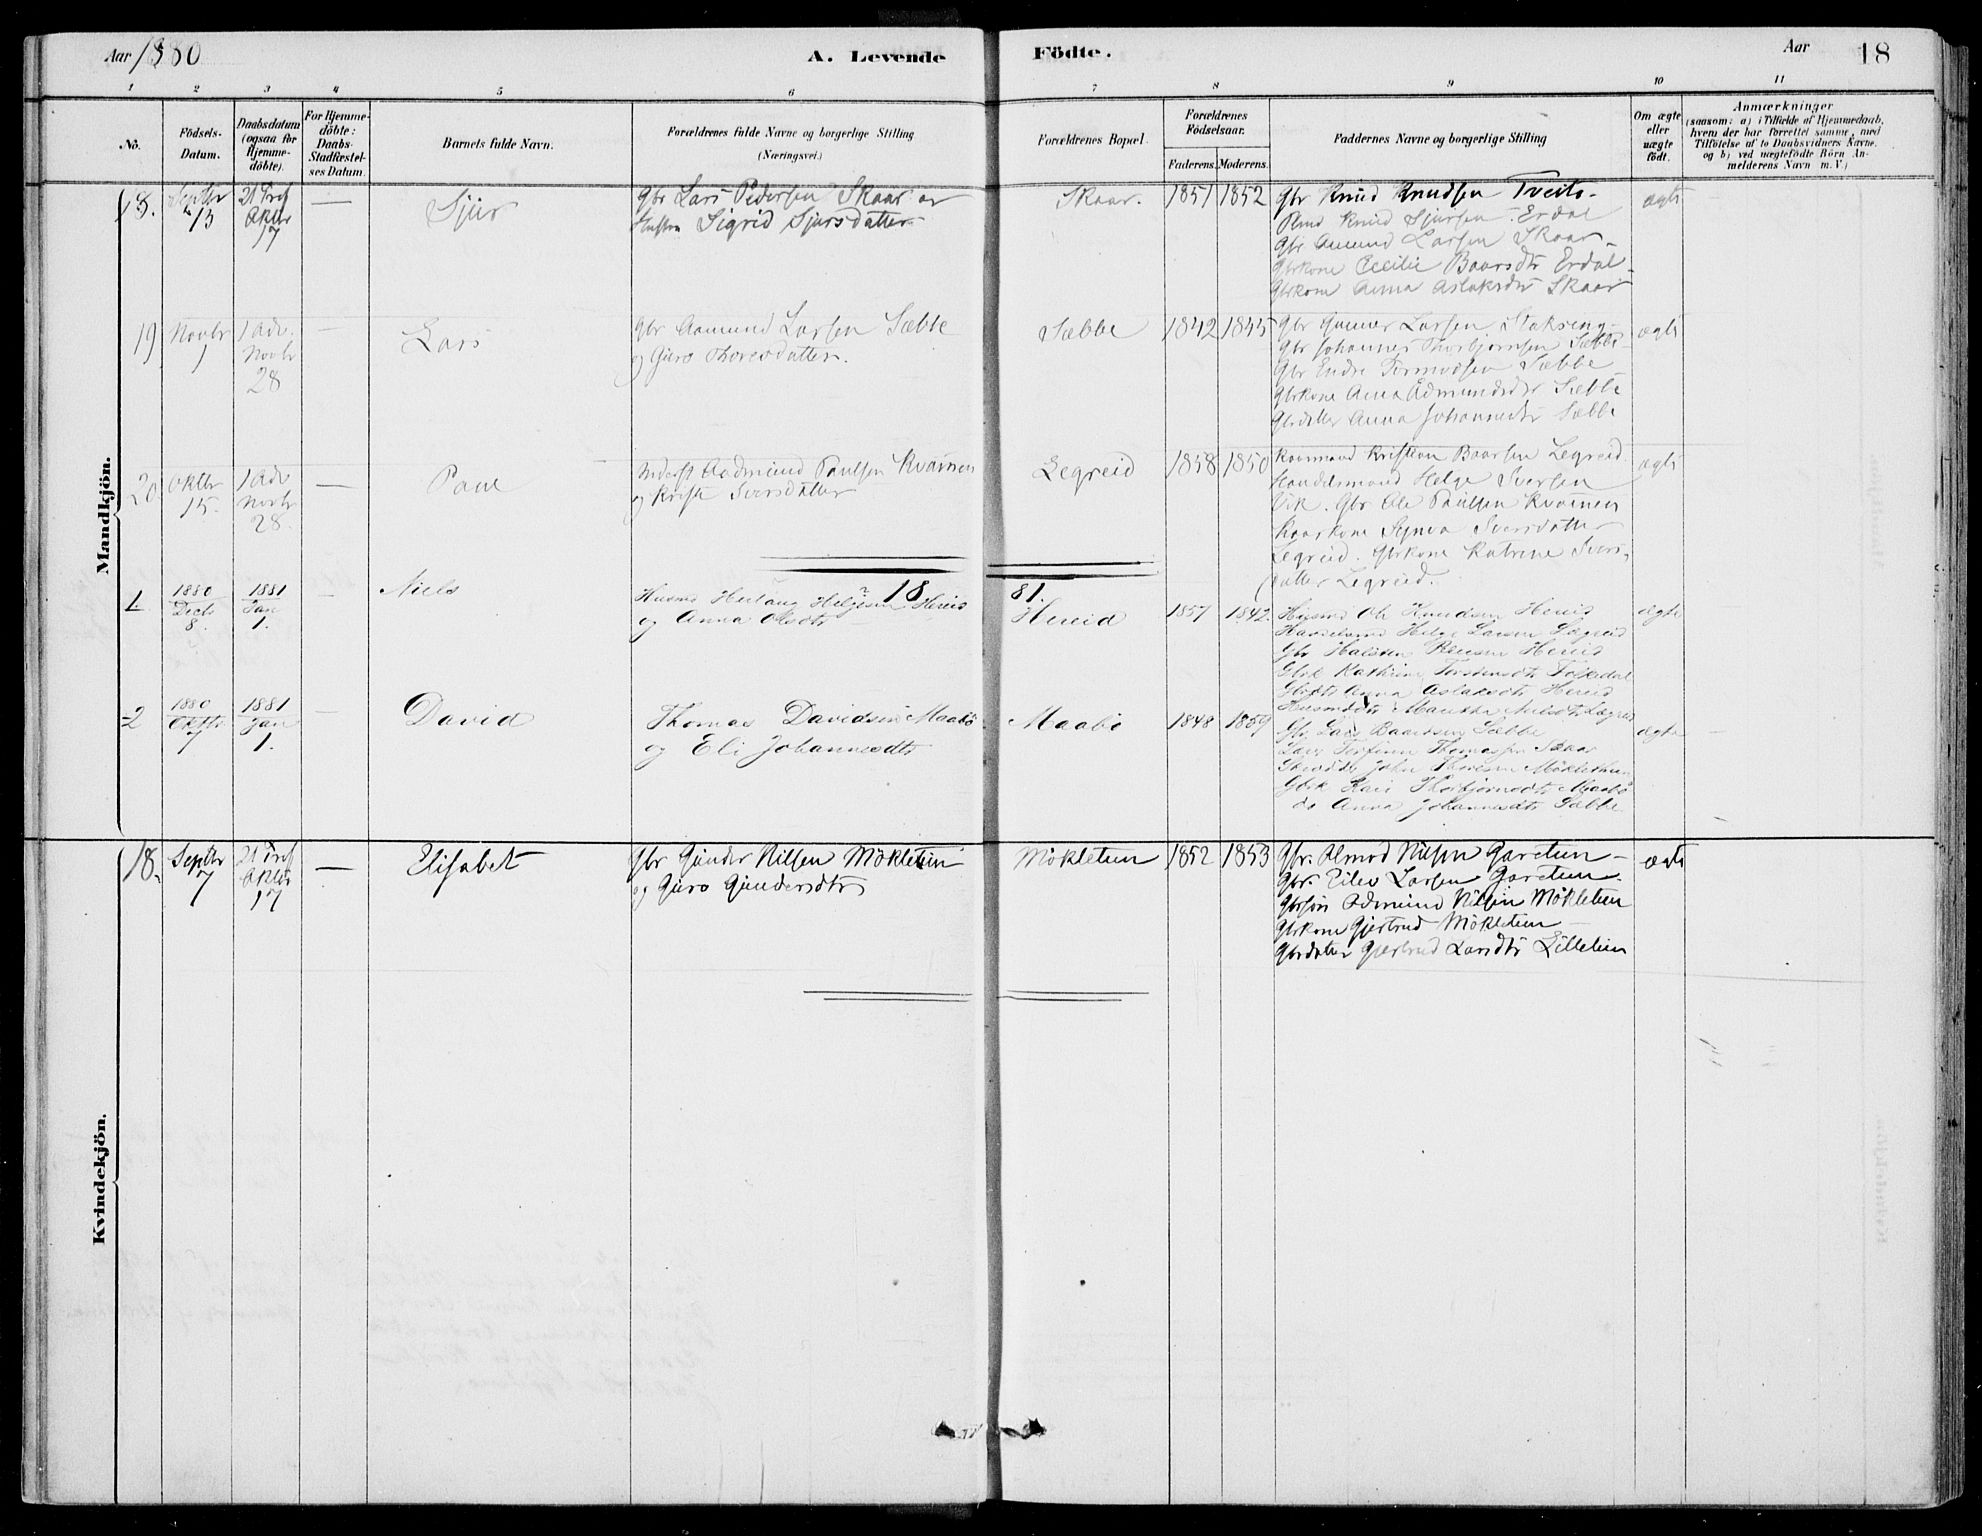 Aar 1880
A. Levende Födte.
Aar 18
1 2 3 4 5 6 7 8 9 10 11
No.
Födsels-
Datum.
Daabsdatum
(ogsaa for
Hjemme-
døbte).
For Hjemme-
döbte:
Daabs-
Stadfæstel-
ses Datum.
Barnets fulde Navn.
Forældrenes fulde Navne og borgerlige Stilling
(Næringsvei.)
Forældrenes Bopæl.
Forældrenes
Födselsaar.
Faderens. Moderens.
Faddernes Navne og borgerlige Stilling
Om ægte
eller
uægte
födt.
Anmærkninger
(saasom: a) i Tilfælde af Hjemmedaab,
hvem der har forrettet samme, med
Tilföielse af to Daabsvidners Navne.
og b) ved uægtefödte Börn An-
melderens Navn m.V.)
Mandkjön.
18. Septbr 13
21 Tref Oktbr 17
—
Sjur
Gbr Lars Pedersen Skaar og
Hustru Sigrid Sjursdatter
Skaar.
1851 1852
Gbr Knud Knudsen Tveito
Knud Sjursen Erdal
Gbr Amund Larsen Skaar
Gbrkone Cecilie Baarsdtr Erdal
Gbrkone Anna Aslaksdtr Skaar
ægte
19 Novbr 1
1 Adv. Novbr 28
—
Lars
Gbr Aamund Larsen Sæbbe
og Guro Thoresdatter.
Sæbbe
1842 1845
Gbr Gunner Larsen
Gbr Johannes Thorbjørnsen Sæbbe
Gbr Endre Tormodsen Sæbbe
Gbrkone Anna Ådmundsdtr Sæbbe
Gbrdatter Anna Johannesdtr Sæbbe
ægte
20 Oktbr 15.
1 Adv Novbr 28.
—
Paul
Inderst Aadmund Paulsen Kvamen
og Kristi Sversdatter
Legreid
1858 1850
Kristian Baarsen Legreid
Handelsmand Helge Sversen
Vik. Gbr Ole Paulsen Kvamen
Synva Sversdatter
Legreid. Gbrkone Katrine Svers-
datter Legreid.
ægte
1881.
1. 1880 Decb 8.
1881 Jan 1.
—
Niels
Husmd Helgesen Hereid
og Anna Olsdtr
Hereid
1857 1842.
Husmd Ole Knudsen Hereid
Handelsmd Helge Larsen Lægreid
Gbr Halsten Hereid
Gbrk Kathrine Torstensdtr
Gbrdtr Anna Aslaksdtr Hereid
ægte
2 1880 Oktbr 7
1881 Jan 1.
—
David
Thomas Davidsen Maabø
og Eli Johannesdtr
Maabø
1848 1859
Husmdtr Martha Nielsdtr Lægreid
Gbr Lars Baardsen Sæbbe
Torfinn Thomassen Skaar
John Thoresen Mökletun
Gbrk Kari Thorbjørnsdtr Maabø
do Anna Johannesdtr Sæbbe
ægte
Kvindekjön.
18. Septbr 7
21 Tref Oktbr 17
—
Elisabet
Gbr Gunder Nilsen Mökletun
og Guro Gundersdtr
Mökletun
1852 1853
Gbr. Almod Nilsen Garetun
Gbr. Eilev Larsen Garetun.
Gbrsøn Admund Nilsen Mökletun
Gbrkone Gjertrud Mökletun
Gbrdatter Gjertrud Larsdtr Lilletun
ægte